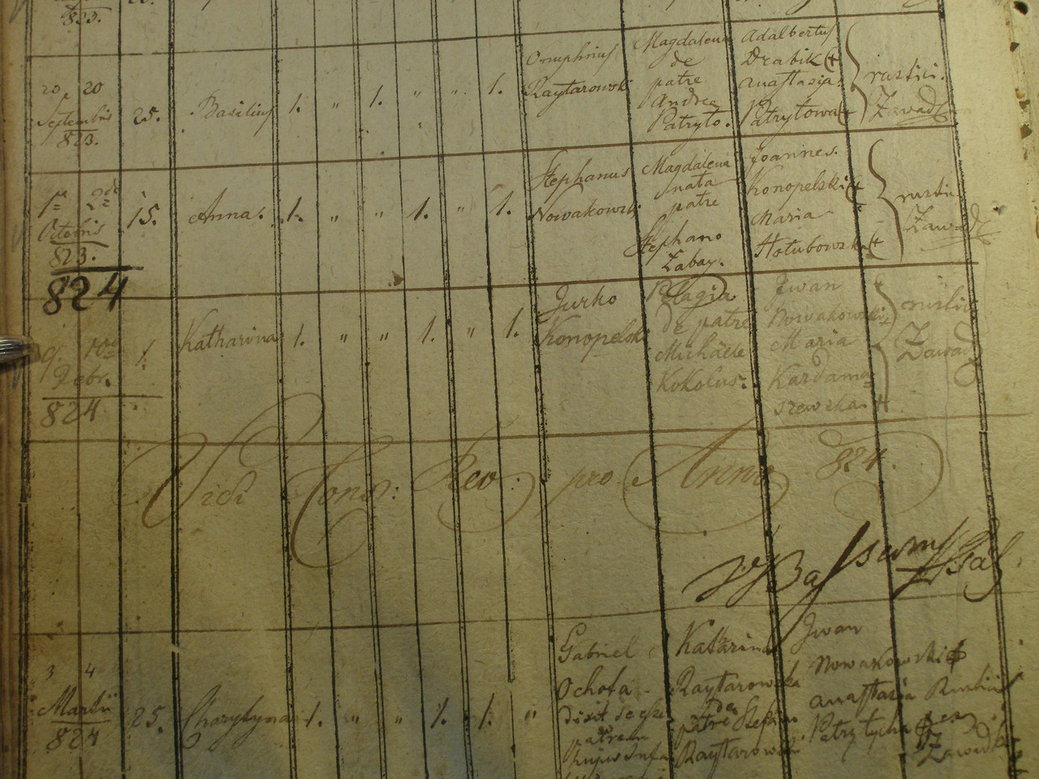 823.
20 20
Septembris
823.
25.
Basilius
1. " 1. " " 1.
Onuphrius
Raytarowski
Magdalena
de
patre
Andrea
Patryto.
Adalbertus
Drabik +
Anastasia
Patrytowa +
rustici.
Zawad
Octobris
823.
15.
Anna.
1. " " 1. " 1.
Stephanus
Nowakowski
Magdalena
nata
patre
Stephano
Zabay.
Joannes.
Konopelski +
Maria
Hołubowska +
rustici
Zawad
824
9. 10
9bris
824
1.
Katharina
1. " " 1. " 1.
Jurko
Konopelski
Pelagia
de patre
Michaele
Kokolus:
Jwan
Nowakowski
Maria
Kardama=
szewska +
rustici
Zawad
Vidi Cons: Rev. pro Anno 824.
3 4
Martii
824
25.
Charytyna
1. " " 1. 1. "
Gabriel
Ochota
dixit se esse
patrem
hujus Infa
Katarina
Raytarowska
de
patre Stefano
Raytarowski
Jwan
Nowakowski +
Anastasia
Patrytycha +
Rustici
ex
Zawad